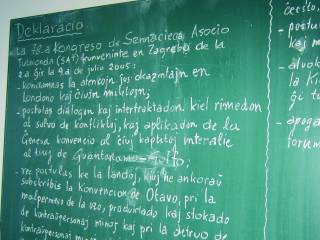 Deklaracio
La 78-a Kongreso de Sennacieca Asocio
Tutmonda (SAT) kunveninte en Zagrebo de la
2-a ĝis la 9-a de julio 2005:
- kondamnas la atencojn ĵus okazintajn en
Londono kaj ĉiujn militojn;
- postulas dialogon kaj intertraktadon kiel rimedon
al solvo de konfliktoj, kaj aplikadon de la
Ĝeneva konvencio al ĉiuj kaptitoj interalie
al tiuj de Guantanamo-Golfo;
- re postulas ke la landoj, kiuj ne ankoraŭ
subskribis la konvencion de Otavo, pri la
malpermeso de la uzo, produktado kaj stokado
de kontraŭpersonaj minoj kaj pri la detruo de
kontraŭpersonaj
ĉeesto,
- postu
kaj
- alvok
la ki
ĝi
- apoga
forum